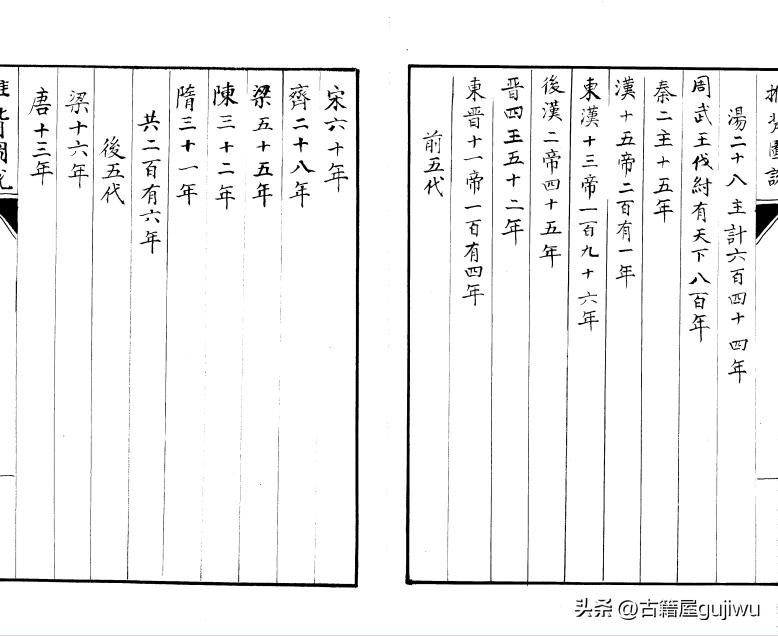 推背圖說
湯二十八主計六百四十四年
周武王伐紂有天下八百年
秦二主十五年
漢十五帝二百有一年
東漢十三帝一百九十六年
後漢二帝四十五年
晋四王五十二年
東晋十一帝一百有四年
前五代
宋六十年
齊二十八年
梁五十五年
陳三十二年
隋三十一年
共二百有六年
後五代
梁十六年
唐十三年
推背圖說
头条 @古籍屋gujiwu